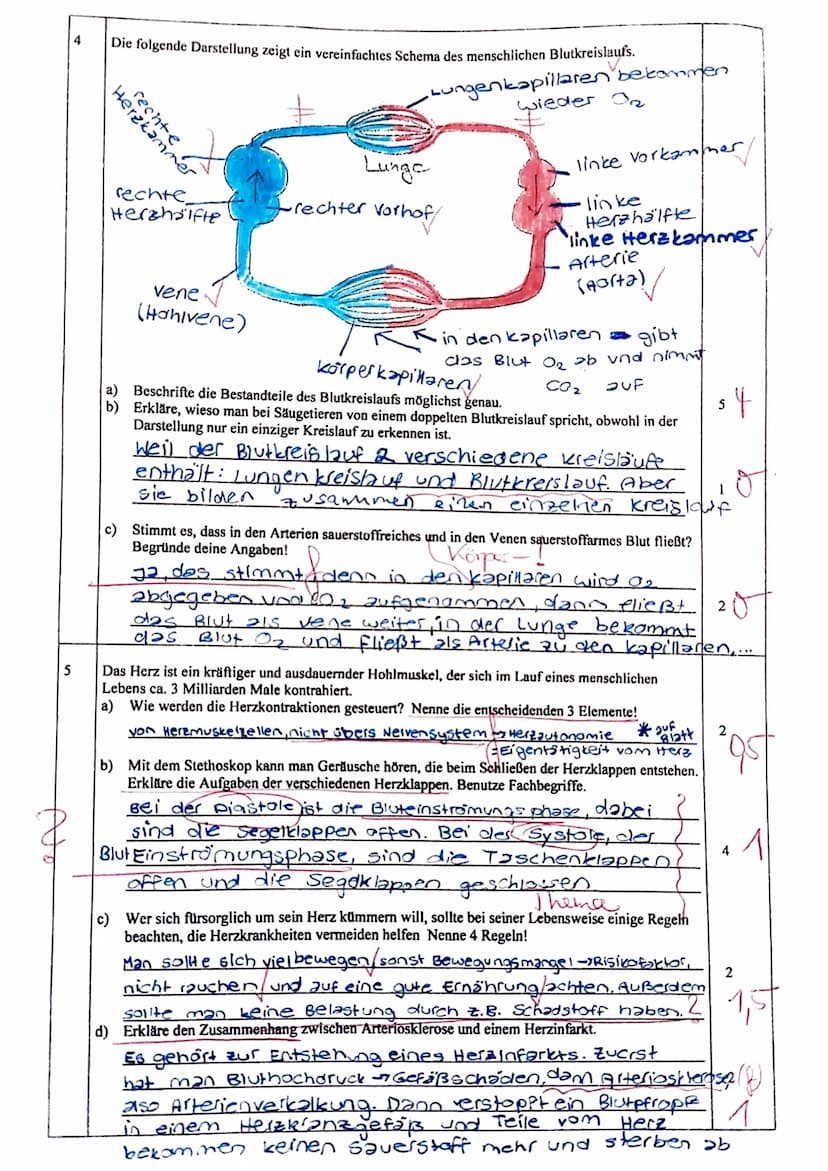 4
Die folgende Darstellung zeigt ein vereinfachtes Schema des menschlichen Blutkreislaufs.
Lungenkapillaren bekommen
wieder O2
rechte
Herzkammer
Lunge
linke Vorkammer
rechte
Herzhälfte
rechter Vorhof
linke
Herzhälfte
linke Herzkammer
Arterie
(Aorta)
Vene
(Hohlvene)
in den Kapillaren gibt
das Blut O2 ab und nimmt
CO2 auf
Körperkapillaren
a) Beschrifte die Bestandteile des Blutkreislaufs möglichst genau.
5 4
b) Erkläre, wieso man bei Säugetieren von einem doppelten Blutkreislauf spricht, obwohl in der
Darstellung nur ein einziger Kreislauf zu erkennen ist.
Weil der Blutkreislauf 2 verschiedene Kreisläufe
enthält: Lungenkreislauf und Blutkreislauf. Aber
1 0
sie bilden zusammen einen einzelnen Kreislauf
c) Stimmt es, dass in den Arterien sauerstoffreiches und in den Venen sauerstoffarmes Blut fließt?
Begründe deine Angaben!
Körper-!
Ja, das stimmt, denn in den Kapillaren wird O2
abgegeben und CO2 aufgenommen, dann fließt
2 0
das Blut als Vene weiter, in der Lunge bekommt
das Blut O2 und fließt als Arterie zu den Kapillaren,...
5
Das Herz ist ein kräftiger und ausdauernder Hohlmuskel, der sich im Lauf eines menschlichen
Lebens ca. 3 Milliarden Male kontrahiert.
a) Wie werden die Herzkontraktionen gesteuert? Nenne die entscheidenden 3 Elemente!
von Herzmuskelzellen, nicht übers Nervensystem → Herzautonomie * auf Blatt
=Eigentätigkeit vom Herz
2 0,5
b) Mit dem Stethoskop kann man Geräusche hören, die beim Schließen der Herzklappen entstehen.
Erkläre die Aufgaben der verschiedenen Herzklappen. Benutze Fachbegriffe.
Bei der Diastole ist die Bluteinströmungsphase, dabei
sind die Segelklappen offen. Bei der Systole, der
?
Blut Einströmungsphase, sind die Taschenklappen
4 1
offen und die Segelklappen geschlossen
Thema
c) Wer sich fürsorglich um sein Herz kümmern will, sollte bei seiner Lebensweise einige Regeln
beachten, die Herzkrankheiten vermeiden helfen Nenne 4 Regeln!
Man sollte sich viel bewegen, sonst Bewegungsmangel → Risikofaktor,
nicht rauchen und auf eine gute Ernährung achten. Außerdem
sollte man keine Belastung durch z.B. Schadstoff haben. ?
2 1,5
d) Erkläre den Zusammenhang zwischen Arteriosklerose und einem Herzinfarkt.
Es gehört zur Entstehung eines Herzinfarkts. Zuerst
hat man Bluthochdruck → Gefäßschäden, dann Arteriosklerose,
also Arterienverkalkung. Dann verstopft ein Blutpfropf
2 1
in einem Herzkranzgefäß und Teile vom Herz
bekommen keinen Sauerstoff mehr und sterben ab